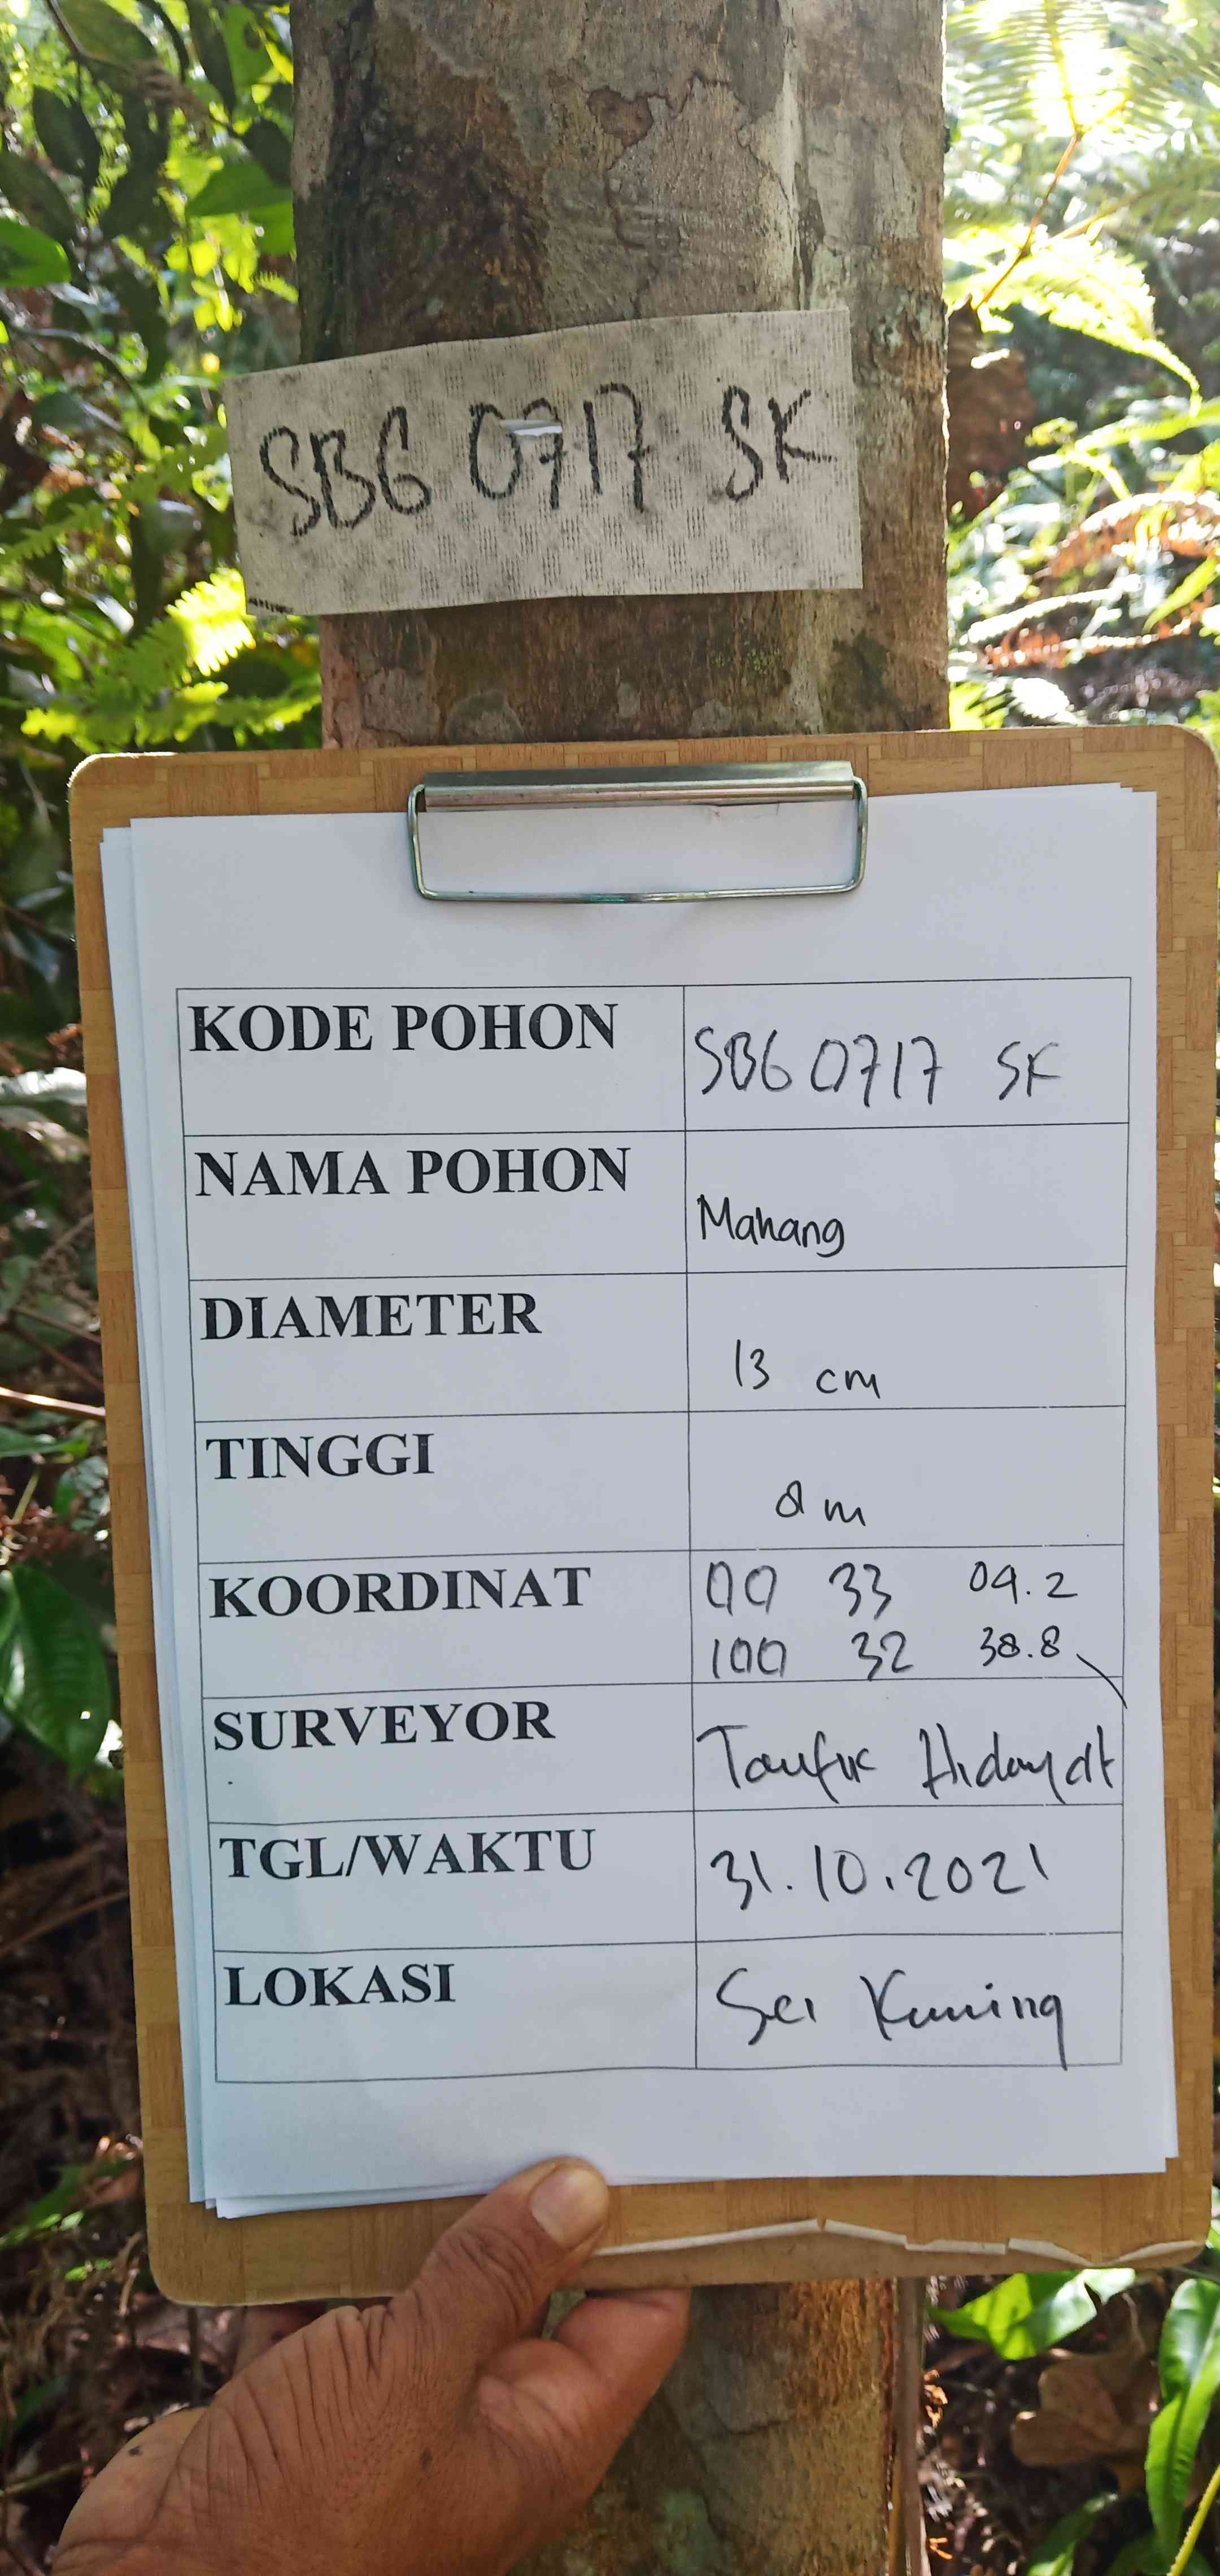 SBG 0717 SK
KODE POHON
SBG 0717 SK
NAMA POHON
Mahang
DIAMETER
13 cm
TINGGI
8 m
KOORDINAT
00 33 04.2
100 32 38.8
SURVEYOR
Taufik Hidayat
TGL/WAKTU
31.10.2021
LOKASI
Sei Kuning